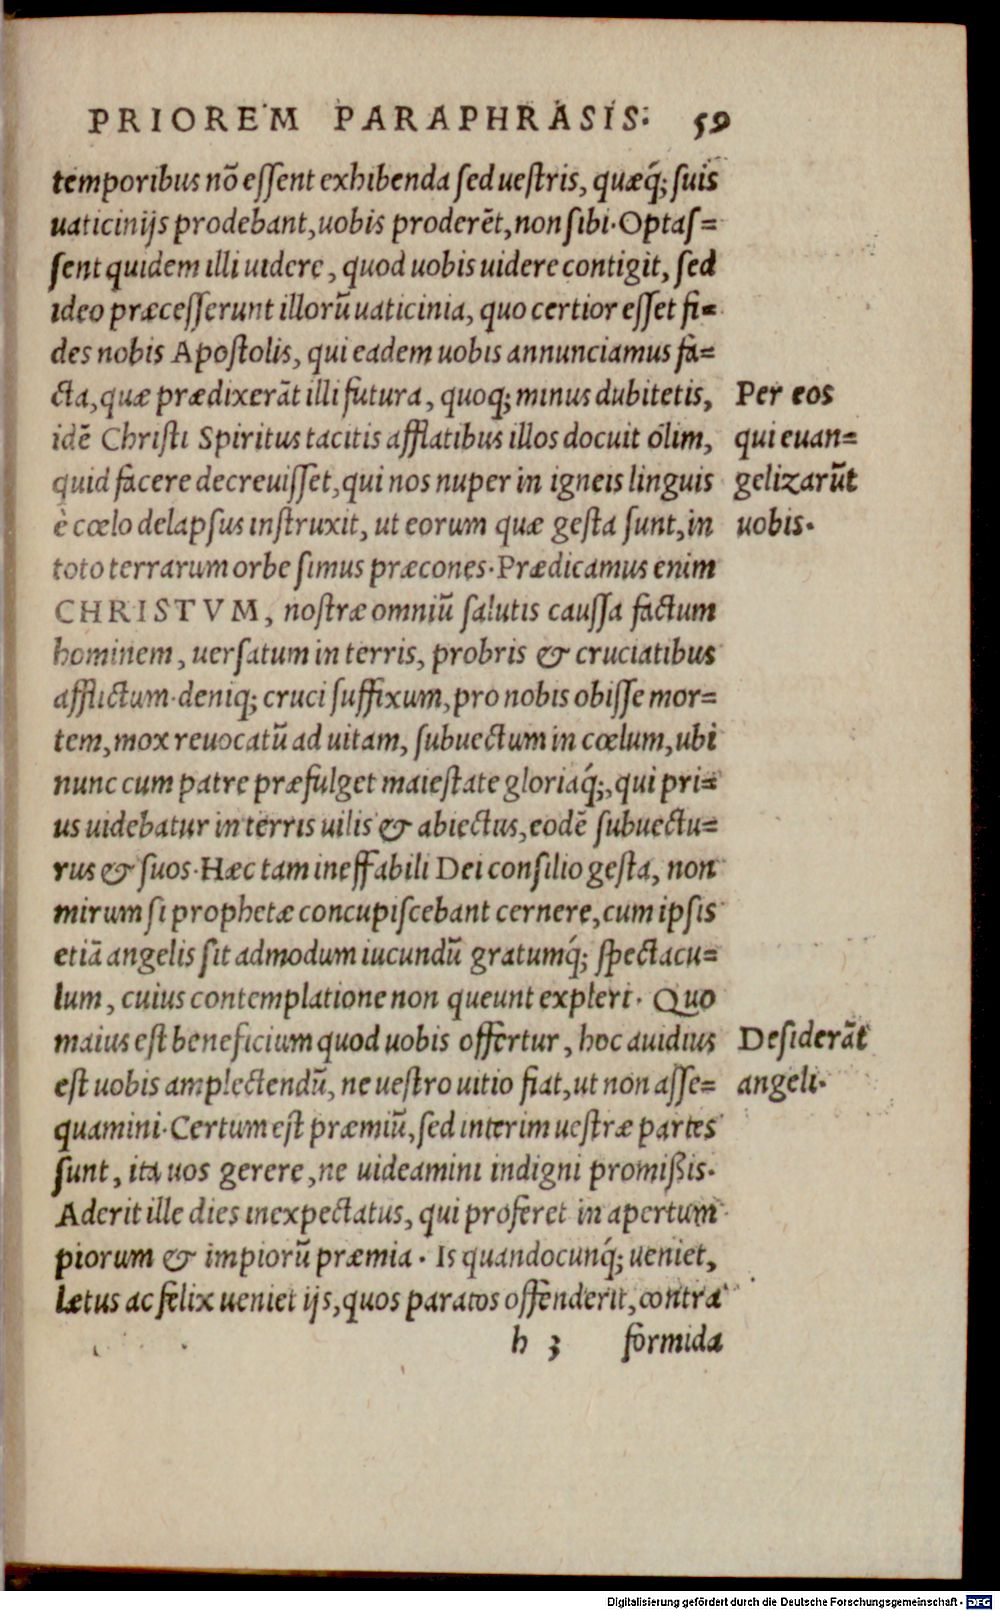 PRIOREM PARAPHRASIS. 59
temporibus nō essent exhibenda sed uestris, quæq́; suis
uaticinijs prodebant, uobis proderēt, non sibi. Optas=
sent quidem illi uidere, quod uobis uidere contigit, sed
ideo præcesserunt illorū uaticinia, quo certior esset fi=
des nobis Apostolis, qui eadem uobis annunciamus fa=
cta, quæ prædixerāt illi futura, quoq; minus dubitetis,
idē Christi Spiritus tacitis afflatibus illos docuit olim,
quid facere decreuisset, qui nos nuper in igneis linguis
è cœlo delapsus instruxit, ut eorum quæ gesta sunt, in
toto terrarum orbe simus præcones. Prædicamus enim
CHRISTVM, nostræ omniū salutis caussa factum
hominem, uersatum in terris, probris & cruciatibus
afflictum. deniq; cruci suffixum, pro nobis obisse mor=
tem, mox reuocatū ad uitam, subuectum in cœlum, ubi
nunc cum patre præfulget maiestate gloriaq́;, qui pri=
us uidebatur in terris uilis & abiectus, eodē subuectu=
rus & suos. Hæc tam ineffabili Dei consilio gesta, non
mirum si prophetæ concupiscebant cernere, cum ipsis
etiā angelis sit admodum iucundū gratumq́; spectacu=
lum, cuius contemplatione non queunt expleri. Quo
maius est beneficium quod uobis offertur, hoc auidius
est uobis amplectendū, ne uestro uitio fiat, ut non asse=
quamini. Certum est præmiū, sed interim uestræ partes
sunt, ita uos gerere, ne uideamini indigni promißis.
Aderit ille dies inexpectatus, qui proferet in apertum
piorum & impiorū præmia. Is quandocunq́; ueniet,
lætus ac felix ueniet ijs, quos paratos offenderit, contra
h 3 formida
Per eos
qui euan=
gelizarūt
uobis.
Desiderāt
angeli.
Digitalisierung gefördert durch die Deutsche Forschungsgemeinschaft - DFG